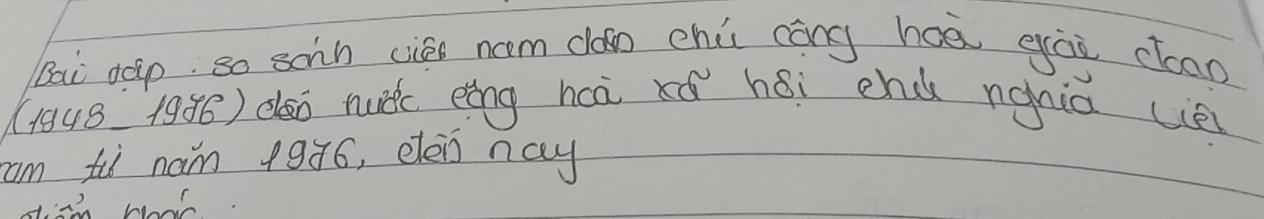 Bài tập : so sánh việt nam dân chủ cộng hoà giai đoạn
(1948 _ 1976) đến nước cộng hoà xã hội chủ nghĩa việt
nam từ năm 1976, đến nay
điểm khác :